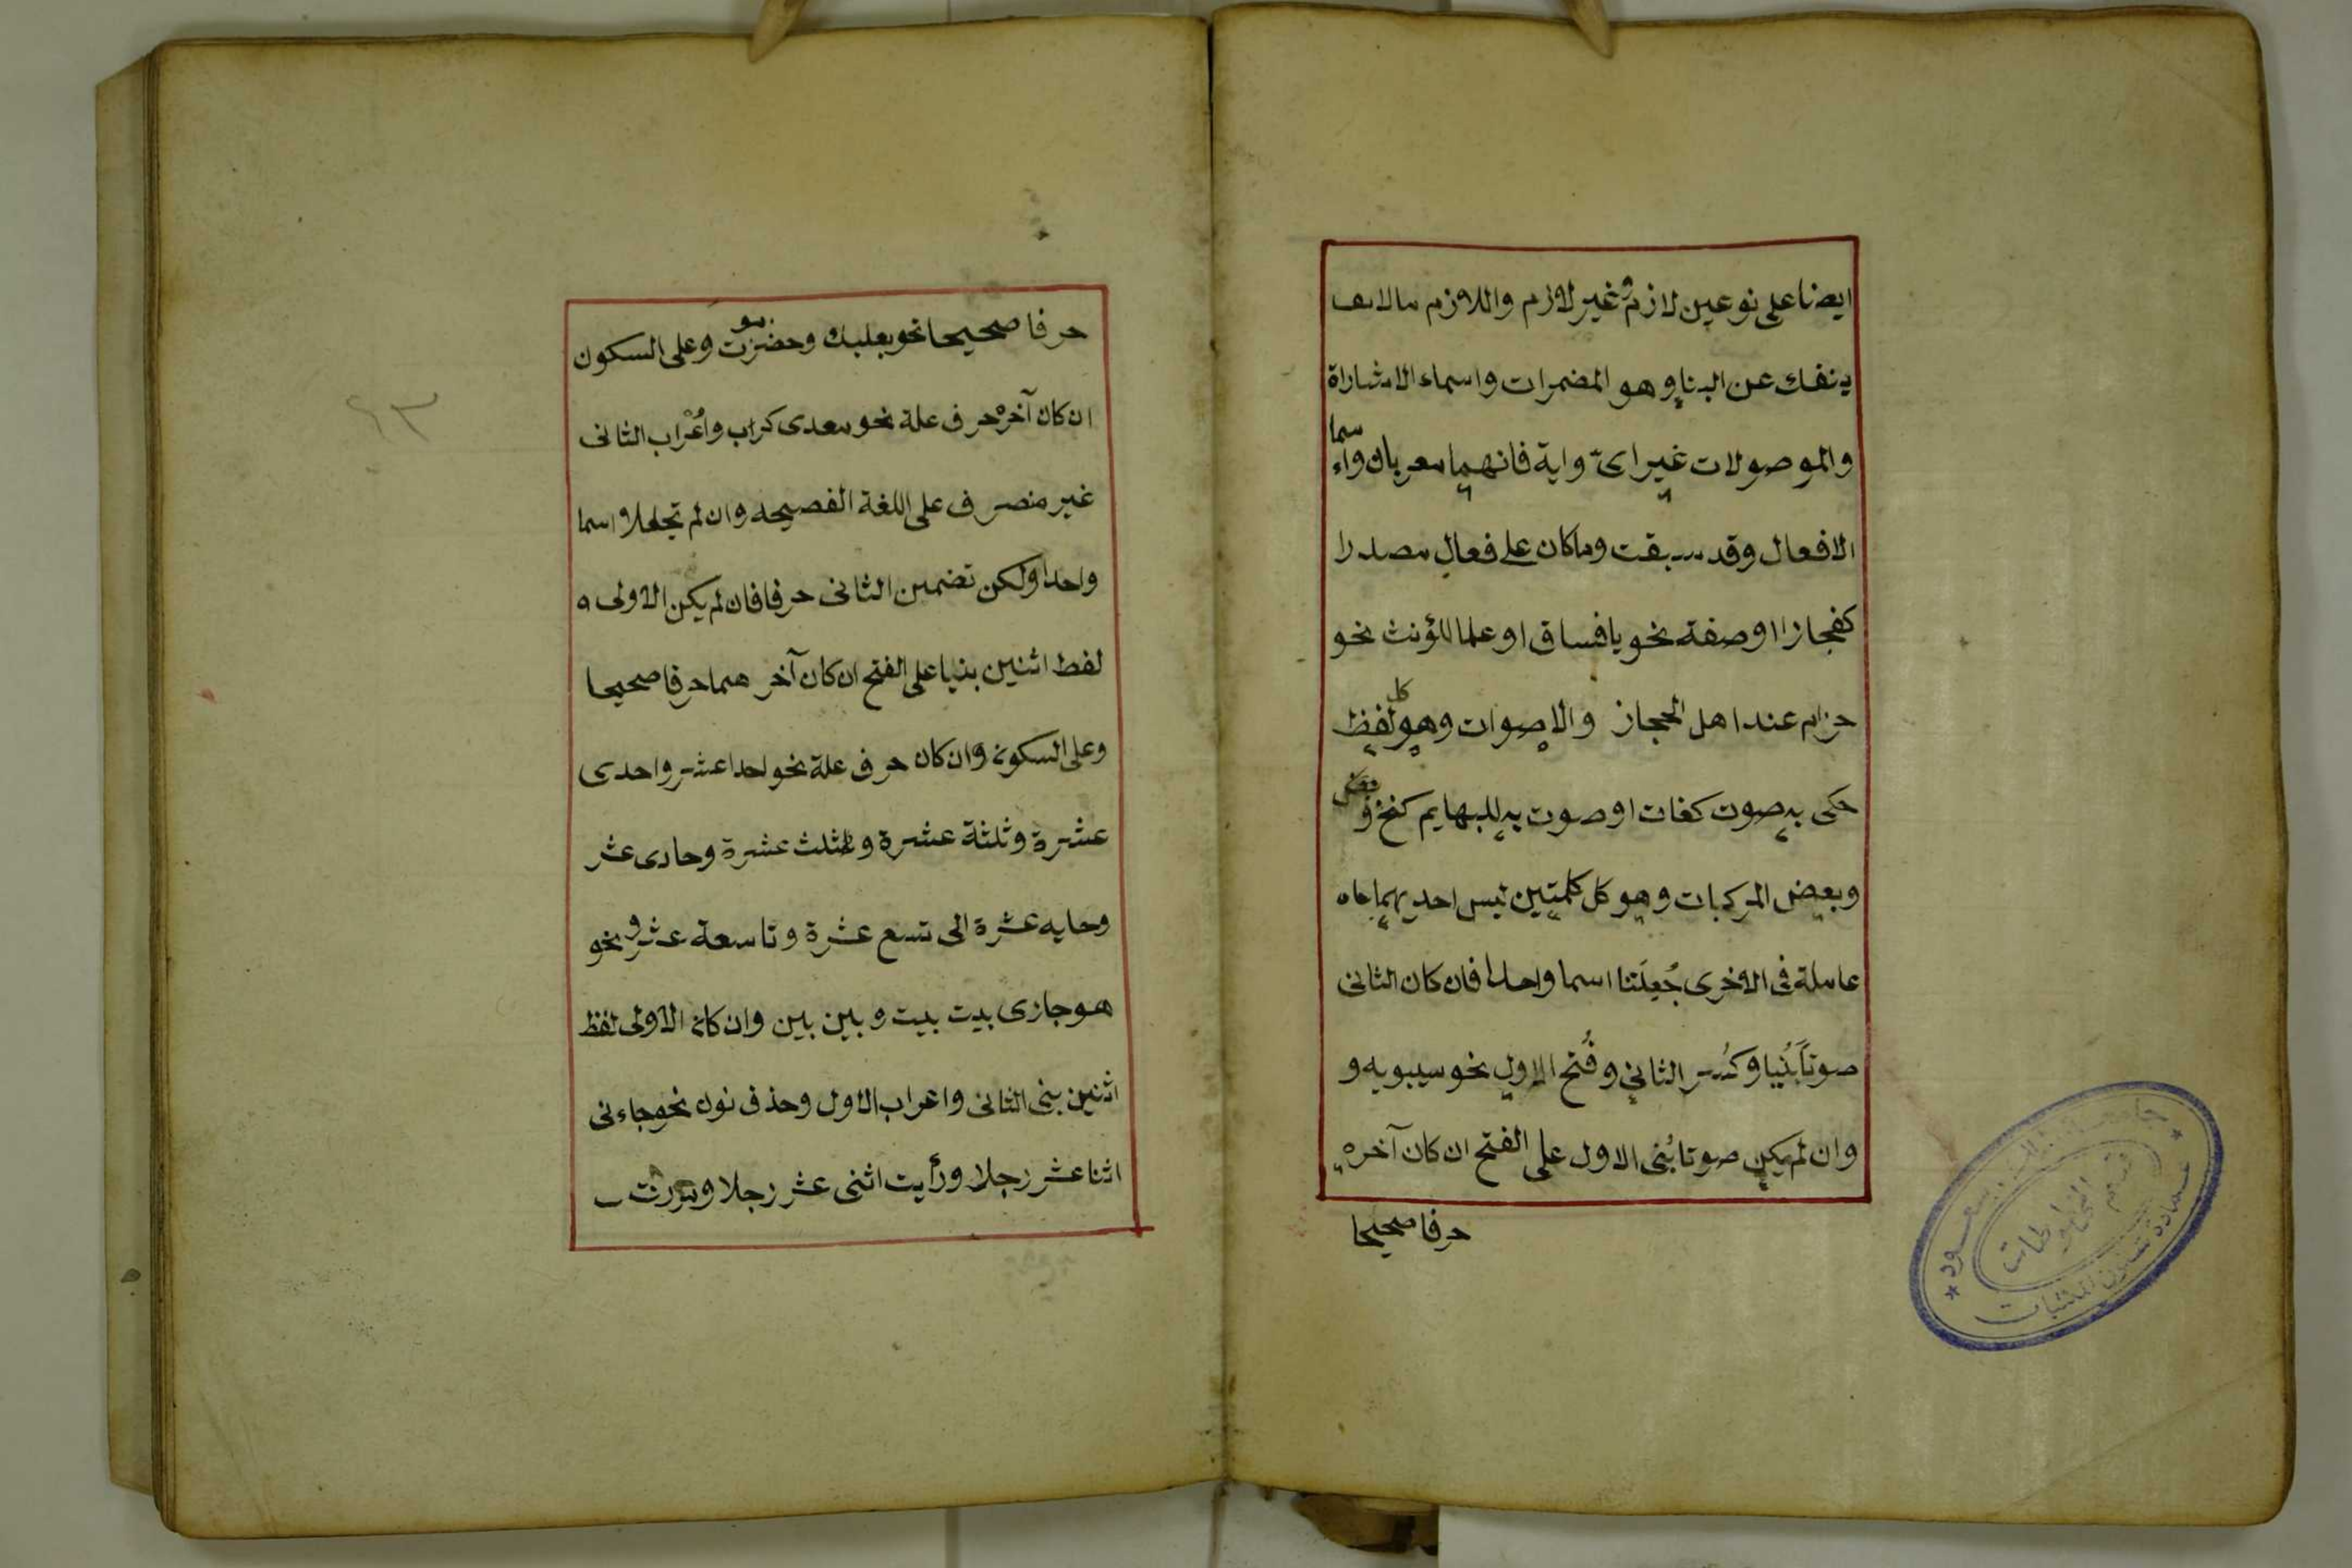 ايضا على نوعين لازم وغير لازم واللازم مالا
ينفك عن البنا وهو المضمرات واسماء الاشاراة
والموصولات غير اىّ واية فانهما معربان واسما
الافعال وقد سبقت وما كان على فعال مصدرا
كفجاز او صفة نحو يا فساق او علما للمؤنث نحو
حزام عند اهل الحجاز والاصوات وهو كل لفظ
حكى به صوت كغات او صوت به للبهايم كنخ و
وبعض المركبات وهو كل كلمتين ليس احديهما
عاملة فى الاخرى جُعِلَتا اسما واحدا فان كان الثانى
صوتاً بُنِيا وكُسر الثاني وفُتح الاول نحو سيبويه و
وان لم يكن صوتا بُنى الاول على الفتح ان كان آخره
حرفا صحيحا
حرفا صحيحا نحو بعلبك وحضرموت وعلى السكون
ان كان آخره حرف علة نحو معدى كراب واُعْراب الثانى
غير منصرف على اللغة الفصيحه وان لم تجعلا اسما
واحدا ولكن تضمين الثانى حرفا فان لم يكن الاولى
لفط اثنين بنيا على الفتح ان كان آخر هما حرفا صحيحا
وعلى السكون وان كان حرف علة نحو احدا عشر واحدى
عشرة وثلثة عشرة وثلث عشرة وحادى عشر
وحايه عشرة الى تسع عشرة وتاسعة عشر ونحو
هو جازى بيت بيت وبين بين وان كان الاولى لفظ
اثنين بنى الثانى واعراب الاول وحذف نون نحو جاءنى
اثنا عشر رجلا ورأيت اثنى عشر رجلا ومررت
٩٣
قسم المخطوطات
عمادة شئون المكتبات